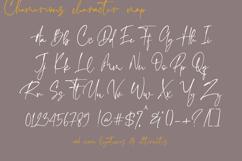 Chamurions character map
Aa Bb Cc Dd Ee Ff Gg Hh Ii
Jj Kk Ll Mm Nn Oo Pp Qq
Rr Ss Tt Uu Vv Ww Xx Yy Zz
0123456789 !@#$%^&*()-+?/[]